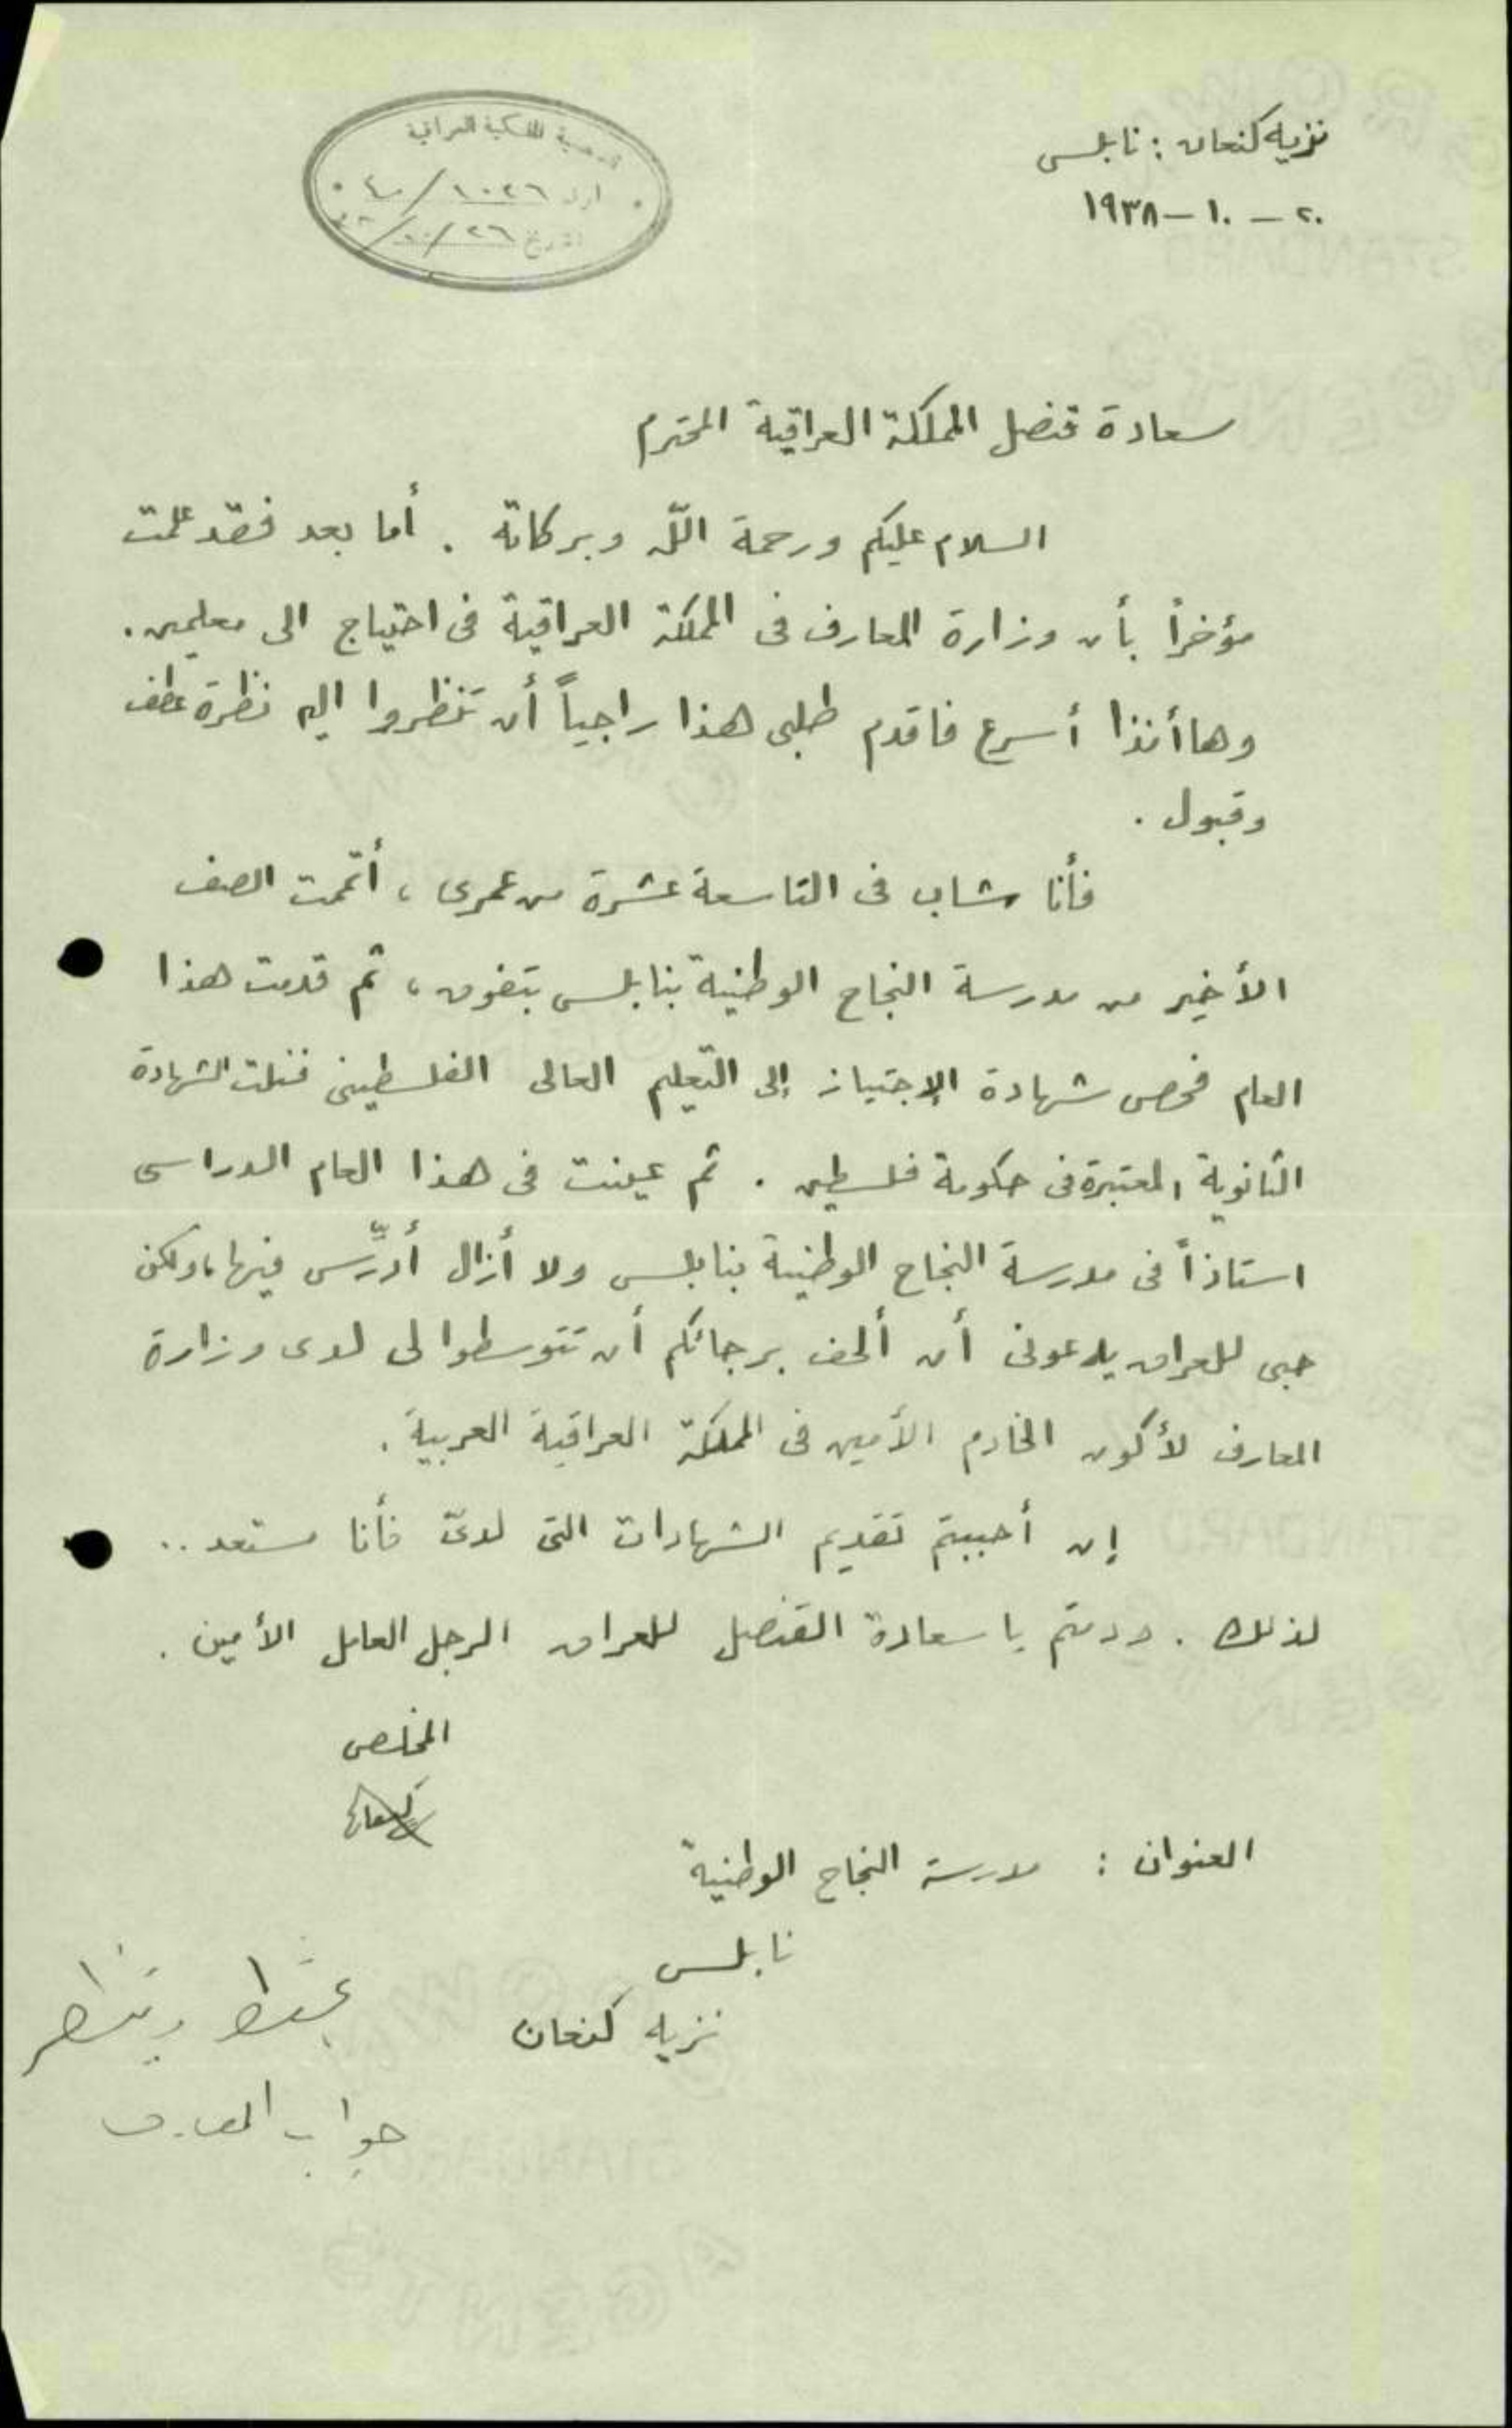 نزيه كنعان : نابلس
٢٠ – ١٠ – ١٩٣٨
القنصلية الملكية العراقية
١٠٢٦ / ٤٠
التاريخ ٢٦ / ١٠ /
سعادة قنصل المملكة العراقية المحترم
السلام عليكم ورحمة اللّه وبركاته . أما بعد فقد علمت
مؤخراً بأن وزارة المعارف في المملكة العراقية في احتياج الى معلمين .
وهاأنذا أسرع فاقدم طلبي هذا راجياً أن تنظروا اليه نظرة عطف
وقبول .
فأنا شاب في التاسعة عشرة من عمري ، أتممت الصف
الأخير من مدرسة النجاح الوطنية بنابلس بتفوق ، ثم قدمت هذا
العام فحص شهادة الإجتياز إلى التعليم العالي الفلسطيني فنلت الشهادة
الثانوية المعتبرة في حكومة فلسطين . ثم عينت في هذا العام الدراسي
استاذاً في مدرسة النجاح الوطنية بنابلس ولا أزال أُدرِّس فيها ، ولكن
حبي للعراق يدعوني أن ألحف برجائكم أن تتوسطوا لي لدى وزارة
المعارف لأكون الخادم الأمين في المملكة العراقية العربية .
إن أحببتم تقديم الشهادات التي لديّ فأنا مستعد ..
لذلك . ودمتم يا سعادة القنصل للعراق الرجل العامل الأمين .
المخلص
كنعان
العنوان : مدرسة النجاح الوطنية
نابلس
نزيه كنعان
يحفظ وينتظر
جواب المعارف